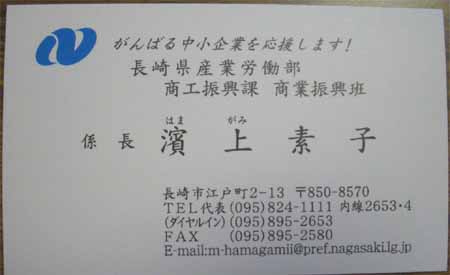 がんばる中小企業を応援します!
長崎県産業労働部
商工振興課 商業振興班
はま がみ
係長 濱上素子
長崎市江戸町2-13 〒850-8570
TEL代表(095)824-1111 内線2653・4
(ダイヤルイン)(095)895-2653
FAX (095)895-2580
E-mail:m-hamagamii@pref.nagasaki.lg.jp